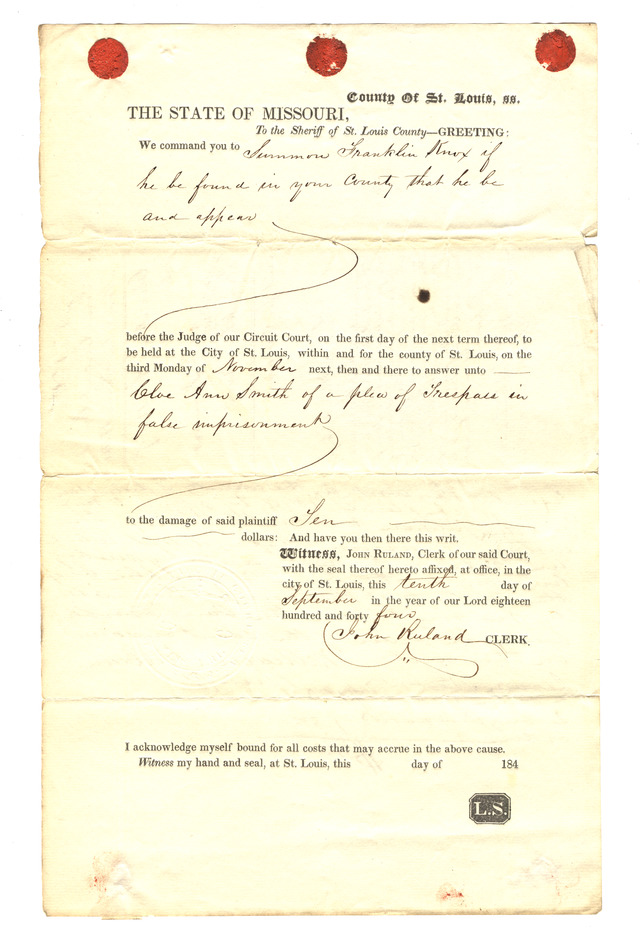 County Of St. Louis, ss.
THE STATE OF MISSOURI,
To the Sheriff of St. Louis County—GREETING:
We command you to Summon Franklin Knox if
he be found in your County that he be
and appear
before the Judge of our Circuit Court, on the first day of the next term thereof, to
be held at the City of St. Louis, within and for the county of St. Louis, on the
third Monday of November next, then and there to answer unto
Cloe Ann Smith of a plea of Trespass in
false imprisonment
to the damage of said plaintiff Ten
dollars: And have you then there this writ.
Witness, JOHN RULAND, Clerk of our said Court,
with the seal thereof hereto affixed, at office, in the
city of St. Louis, this tenth day of
September in the year of our Lord eighteen
hundred and forty four
John Ruland CLERK.
I acknowledge myself bound for all costs that may accrue in the above cause.
Witness my hand and seal, at St. Louis, this day of 184
L.S.